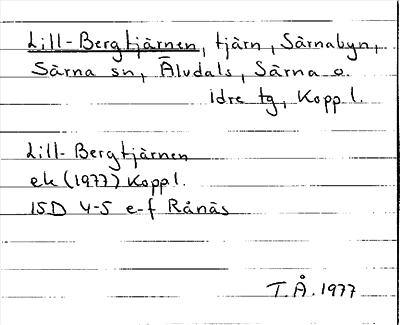 Lill-Bergtjärnen, tjärn, Särnabyn,
Särna sn, Älvdals, Särna o.
Idre tg, Koppl.
Lill-Bergtjärnen
ek (1977) Koppl.
15D 4-5 e-f Rånäs
T.Å. 1977